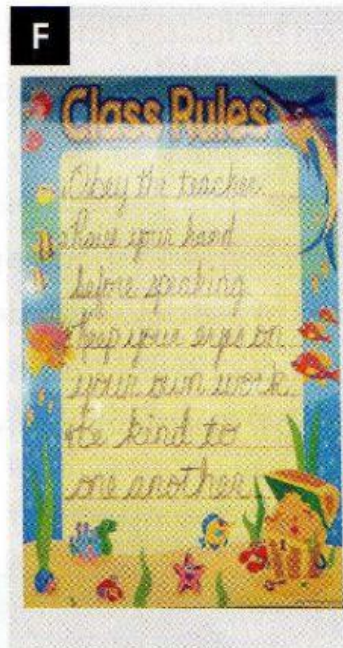 F
Class Rules
Obey the teacher
Raise your hand
before speaking
Keep your eyes on
your own work
Be kind to
one another